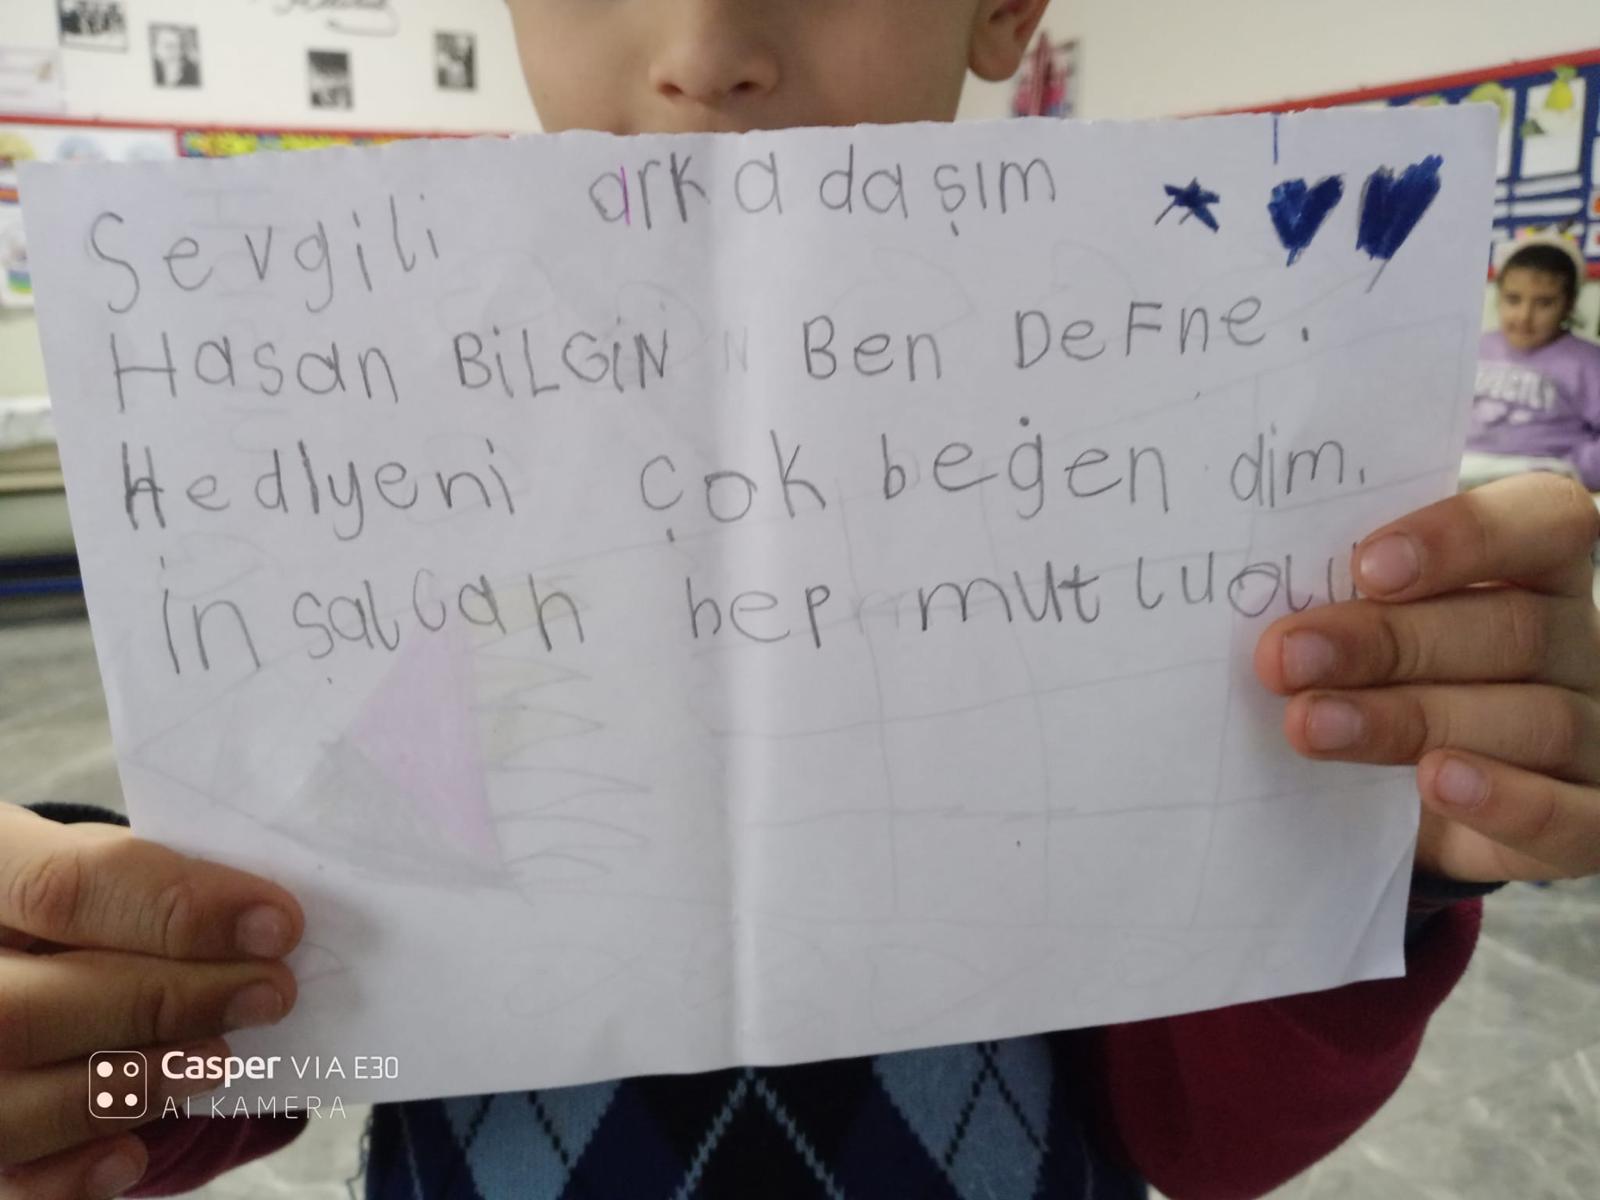 Sevgili arkadaşım
Hasan BİLGİN Ben DeFne.
Hedlyeni çok beğen dim.
İn şallah hep mutlu olu
Casper VIA E30
AI KAMERA